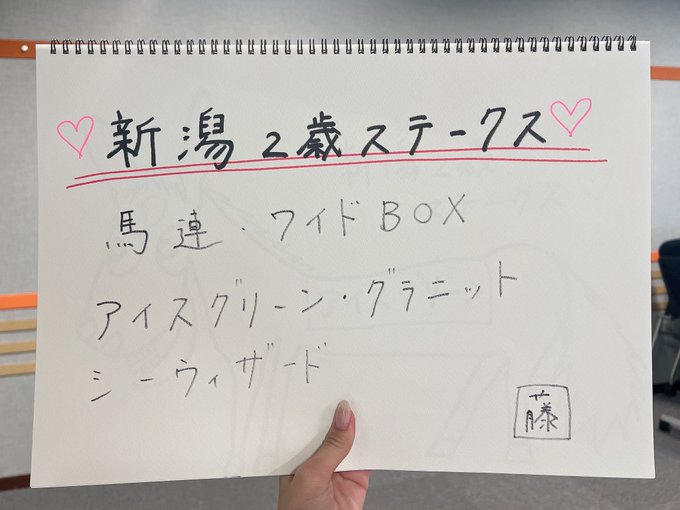 新潟2歳ステークス
馬連・ワイドBOX
アイスグリーン・グラニット
シーウィザード
藤